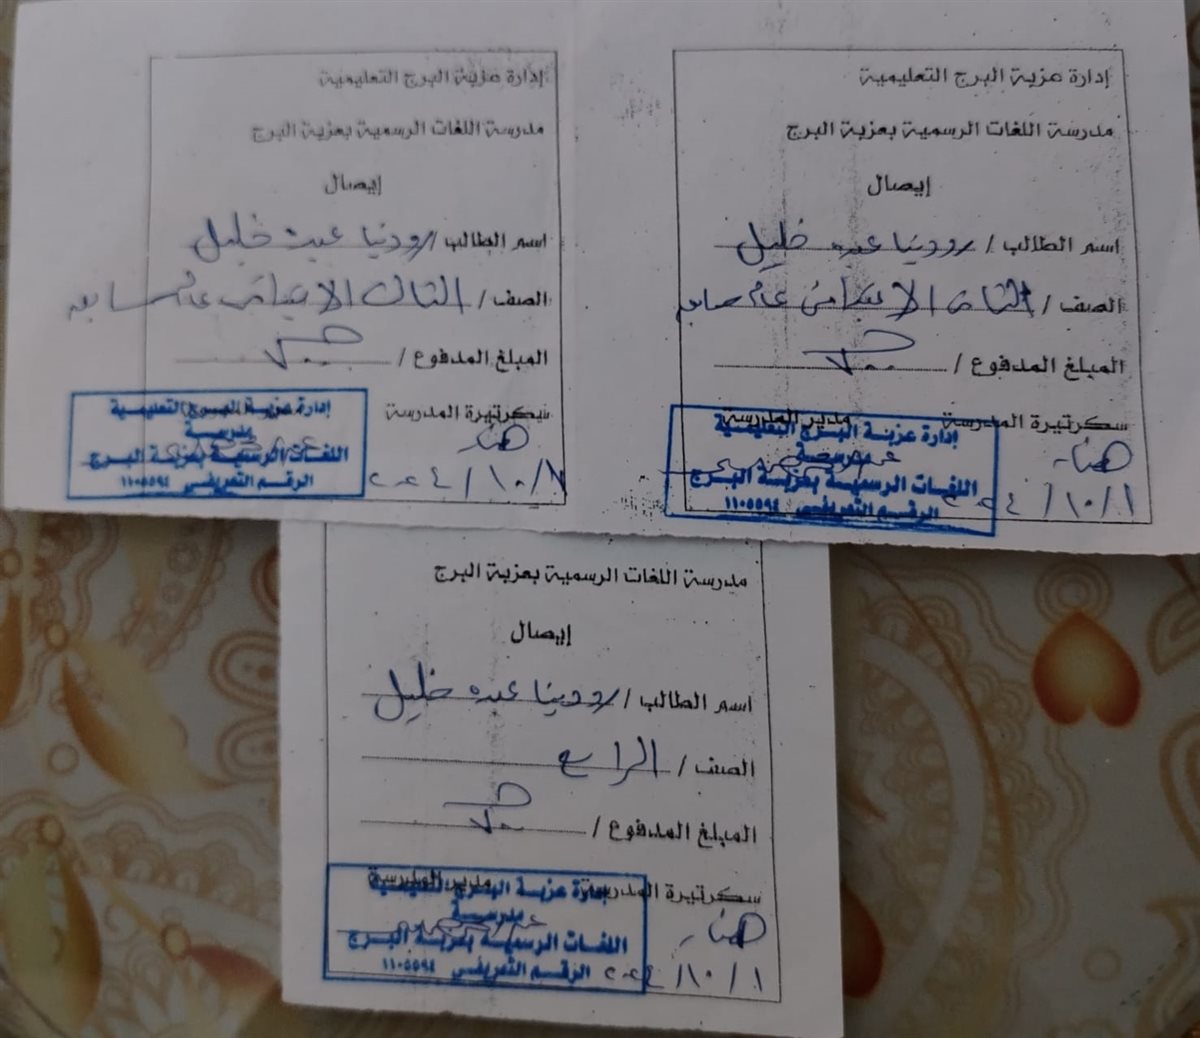 إدارة عزبة البرج التعليمية
مدرسة اللغات الرسمية بعزبة البرج
إيصال
اسم الطالب / رودينا عبده خليل
الصف / الثانى الابتدائى عام سابق
المبلغ المدفوع /
سكرتيرة المدرسة مدير المدرسة
هناء
إدارة عزبة البرج التعليمية
مدرسة
اللغات الرسمية بعزبة البرج
الرقم التعريفى ١١٠٥٥٩٤
٢٠٢٤/١٠/١
إدارة عزبة البرج التعليمية
مدرسة اللغات الرسمية بعزبة البرج
إيصال
اسم الطالب / رودينا عبده خليل
الصف / الثالث الابتدائى عام سابق
المبلغ المدفوع /
سكرتيرة المدرسة
هناء
إدارة عزبة البرج التعليمية
مدرسة
اللغات الرسمية بعزبة البرج
الرقم التعريفى ١١٠٥٥٩٤
٢٠٢٤/١٠/١
مدرسة اللغات الرسمية بعزبة البرج
إيصال
اسم الطالب / رودينا عبده خليل
الصف / الرابع
المبلغ المدفوع /
سكرتيرة المدرسة مدير المدرسة
هناء
إدارة عزبة البرج التعليمية
مدرسة
اللغات الرسمية بعزبة البرج
الرقم التعريفى ١١٠٥٥٩٤
٢٠٢٤/١٠/١